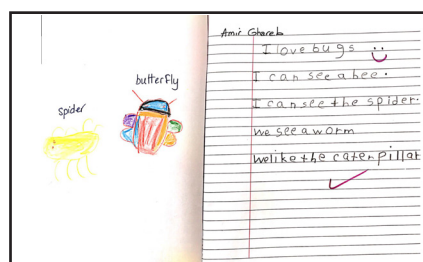 butterfly
spider
Amir Ghareb
I love bugs
I can see a bee.
I can see the spider.
we see a worm
we like the caterpillar